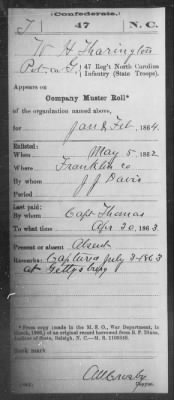 (Confederate.)
T 47 N.C.
W H Tharington
Pvt. Co. G, 47 Reg't North Carolina
Infantry (State Troops).
Appears on
Company Muster Roll*
of the organization named above,
for Jan & Feb, 1864.
Enlisted:
When May 5, 1862
Where Franklin Co
By whom J J Davis
Period
Last paid:
By whom Capt Thomas
To what time Apr 30, 1863
Present or absent Absent
Remarks: Captured July 3-1863
at Gettysburg
*From copy (made in the M. S. O., War Department, in
of an original record borrowed from
Raleigh, N. C.
Book mark:
Copyist.